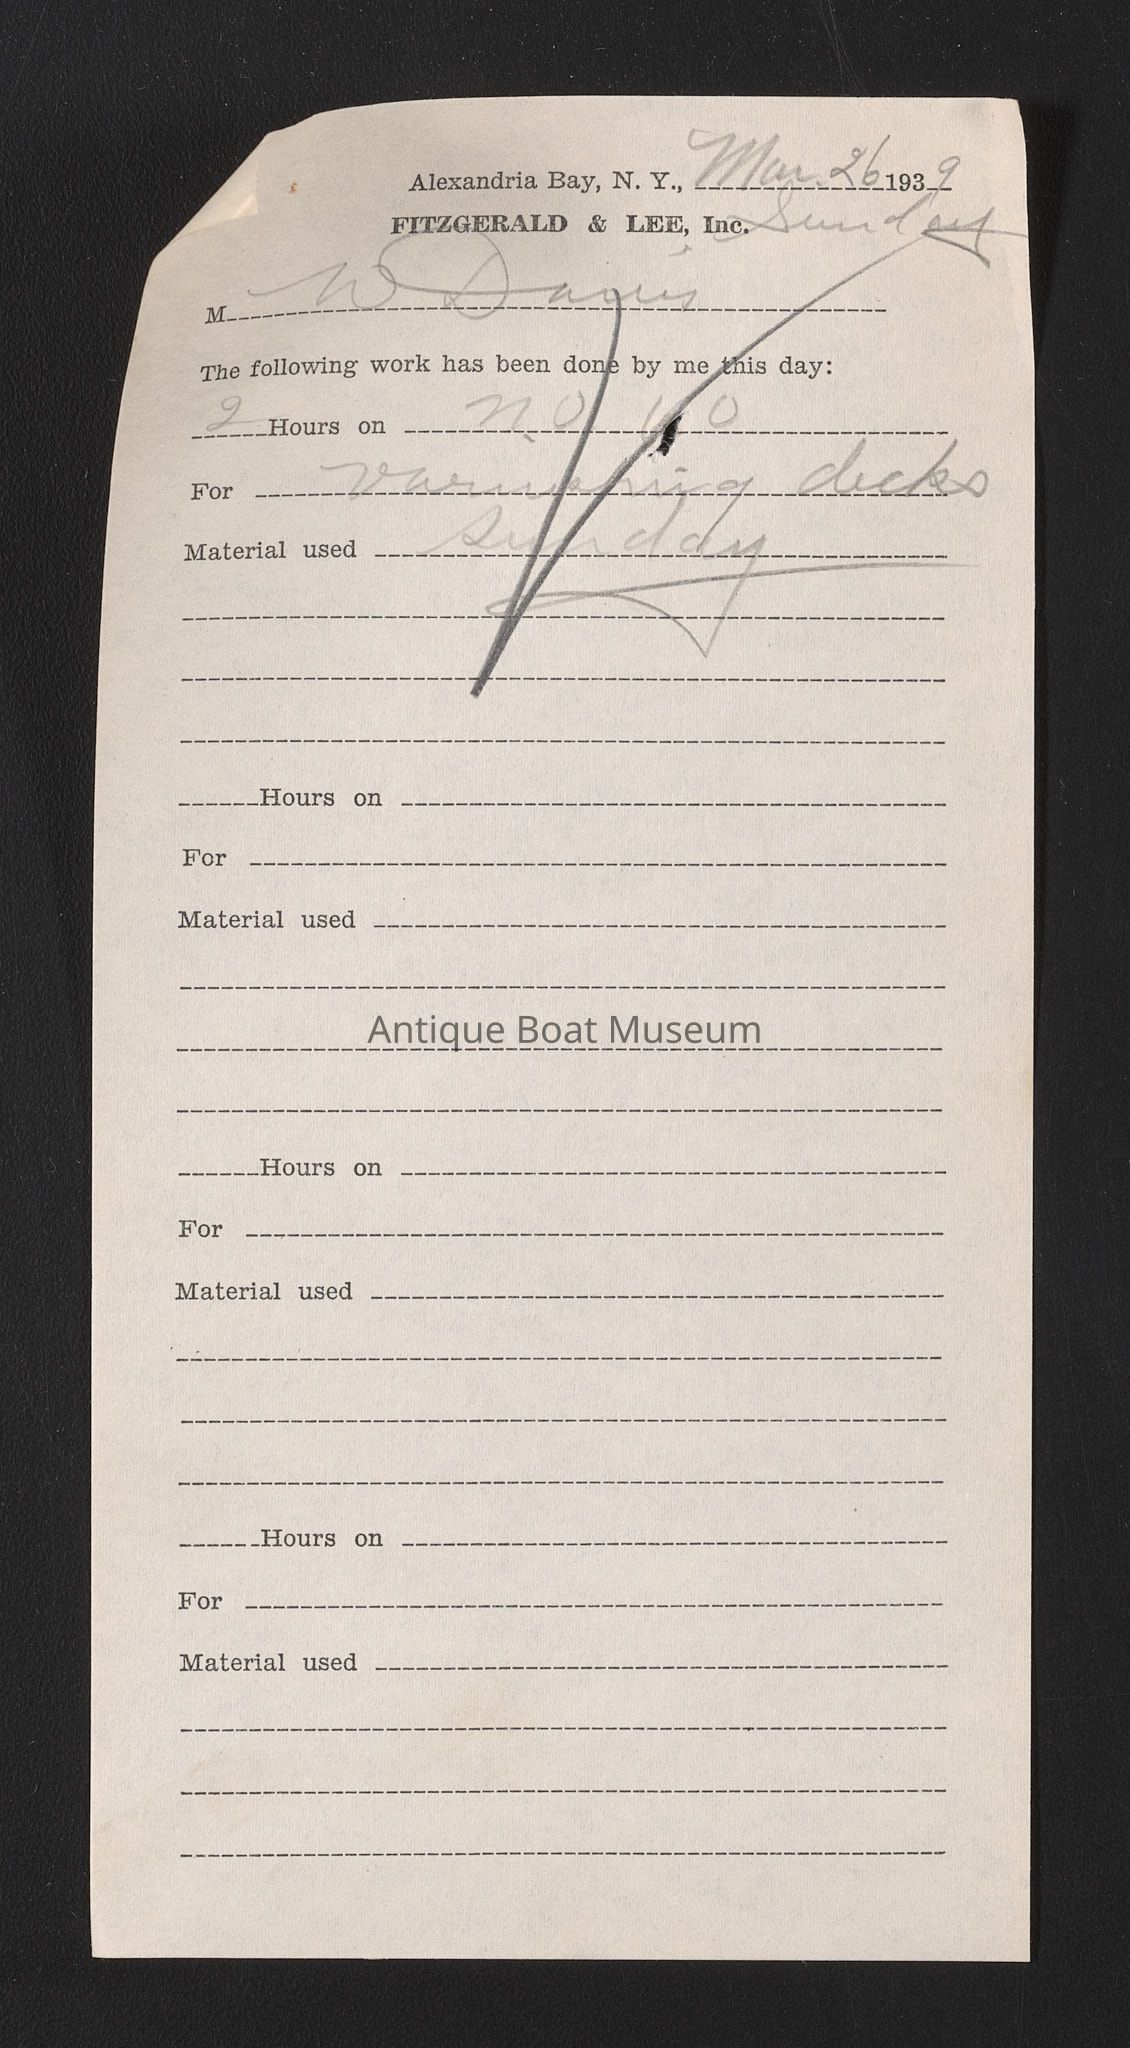 Alexandria Bay, N. Y., Mar. 26 1939
FITZGERALD & LEE, Inc. Sunday
M W Davis
The following work has been done by me this day:
2 Hours on NO
For varnishing decks
Material used Sunday
Hours on
For
Material used
Antique Boat Museum
Hours on
For
Material used
Hours on
For
Material used